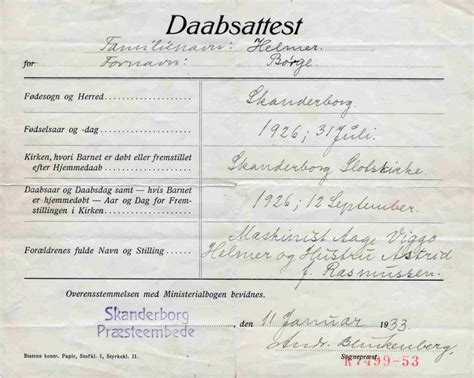 Daabsattest
Familienavn: Helmer.
for Fornavn: Børge.
Fødesogn og Herred
Skanderborg
Fødselsaar og -dag
1926; 31 Juli.
Kirken, hvori Barnet er døbt eller fremstillet
efter Hjemmedaab
Skanderborg Slotskirke.
Daabsaar og Daabsdag samt — hvis Barnet
er hjemmedøbt — Aar og Dag for Frem-
stillingen i Kirken
1926; 12 September.
Forældrenes fulde Navn og Stilling
Maskinist Aage Viggo
Helmer og Hustru Astrid
f. Rasmussen.
Overensstemmelsen med Ministerialbogen bevidnes.
Skanderborg
Præsteembede
, den 11 Januar 1933.
Andr. Blinkenberg.
Sognepræst.
Statens kontr. Papir, Stofkl. I, Styrkekl. II.
R7499-53